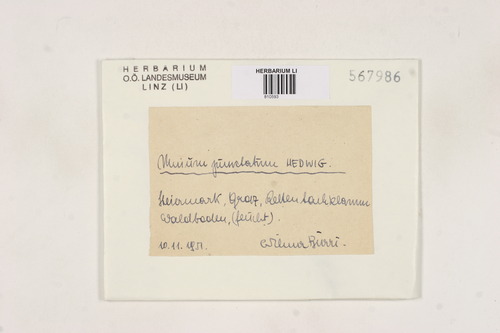 HERBARIUM
O.Ö. LANDESMUSEUM
LINZ (LI)
HERBARIUM LI
567986
Mnium punctatum HEDWIG.
Steiermark, Graz, Rettenbachklamm
Waldboden, (feucht).
10.11.1951.